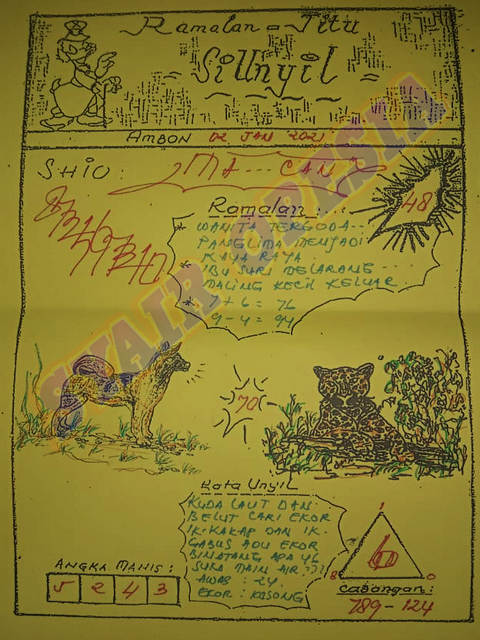 Ramalan = Jitu
SiUnyil
AMBON 02 JAN 2021
SHIO: MA---CAN
48
Ramalan:
* WANITA TERGODA...
PANGLIMA MENJADI
KAYA RAYA.
* IBU SURI MELARANG...
MALING KECIL KELUAR.
* 7 + 6 = 76
9 - 4 = 94
70
Kata Unyil
KUDA LAUT DAN
BELUT CARI EKOR
IK. KAKAP DAN IK.
GABUS ADU EKOR
BINATANG APA YG
SUKA MAIN AIR ???
AWAS: 24.
EKOR: KOSONG
ANGKA MANIS:
5 2 4 3
1
6
8 0
Cabangan:
789-124
SYAIR OPESIA